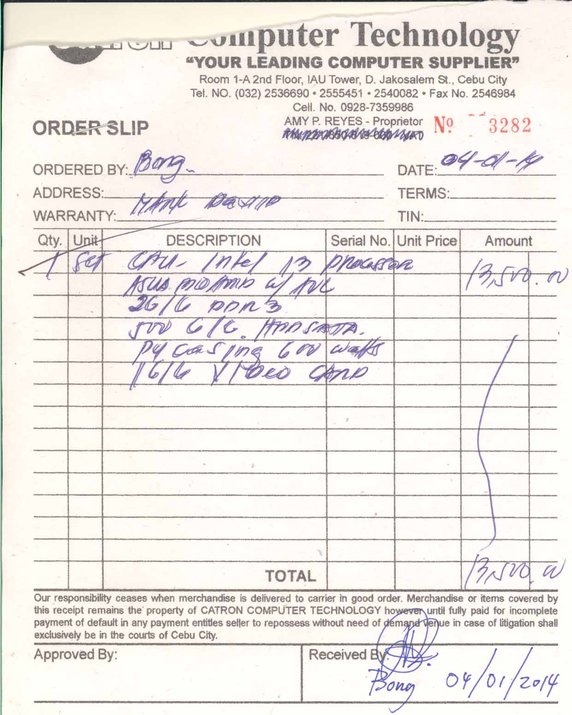 Computer Technology
"YOUR LEADING COMPUTER SUPPLIER"
Room 1-A 2nd Floor, IAU Tower, D. Jakosalem St., Cebu City
Tel. NO. (032) 2536690 • 2555451 • 2540082 • Fax No. 2546984
Cell. No. 0928-7359986
AMY P. REYES - Proprietor
ORDER SLIP
Nº 3282
ORDERED BY: Bong
DATE: 04-01-14
ADDRESS:
TERMS:
WARRANTY: Mark
TIN:
Qty. Unit DESCRIPTION Serial No. Unit Price Amount
1 set CPU - Intel i3 processor 13,500.00
ASUS w/
2G/G DDR3
500 G/G. HDD SATA.
P4 casing 600 watts
1G/G VIDEO CARD
TOTAL 13,500.00
Our responsibility ceases when merchandise is delivered to carrier in good order. Merchandise or items covered by
this receipt remains the property of CATRON COMPUTER TECHNOLOGY however until fully paid for incomplete
payment of default in any payment entities seller to repossess without need of demand venue in case of litigation shall
exclusively be in the courts of Cebu City.
Approved By:
Received By:
Bong 04/01/2014